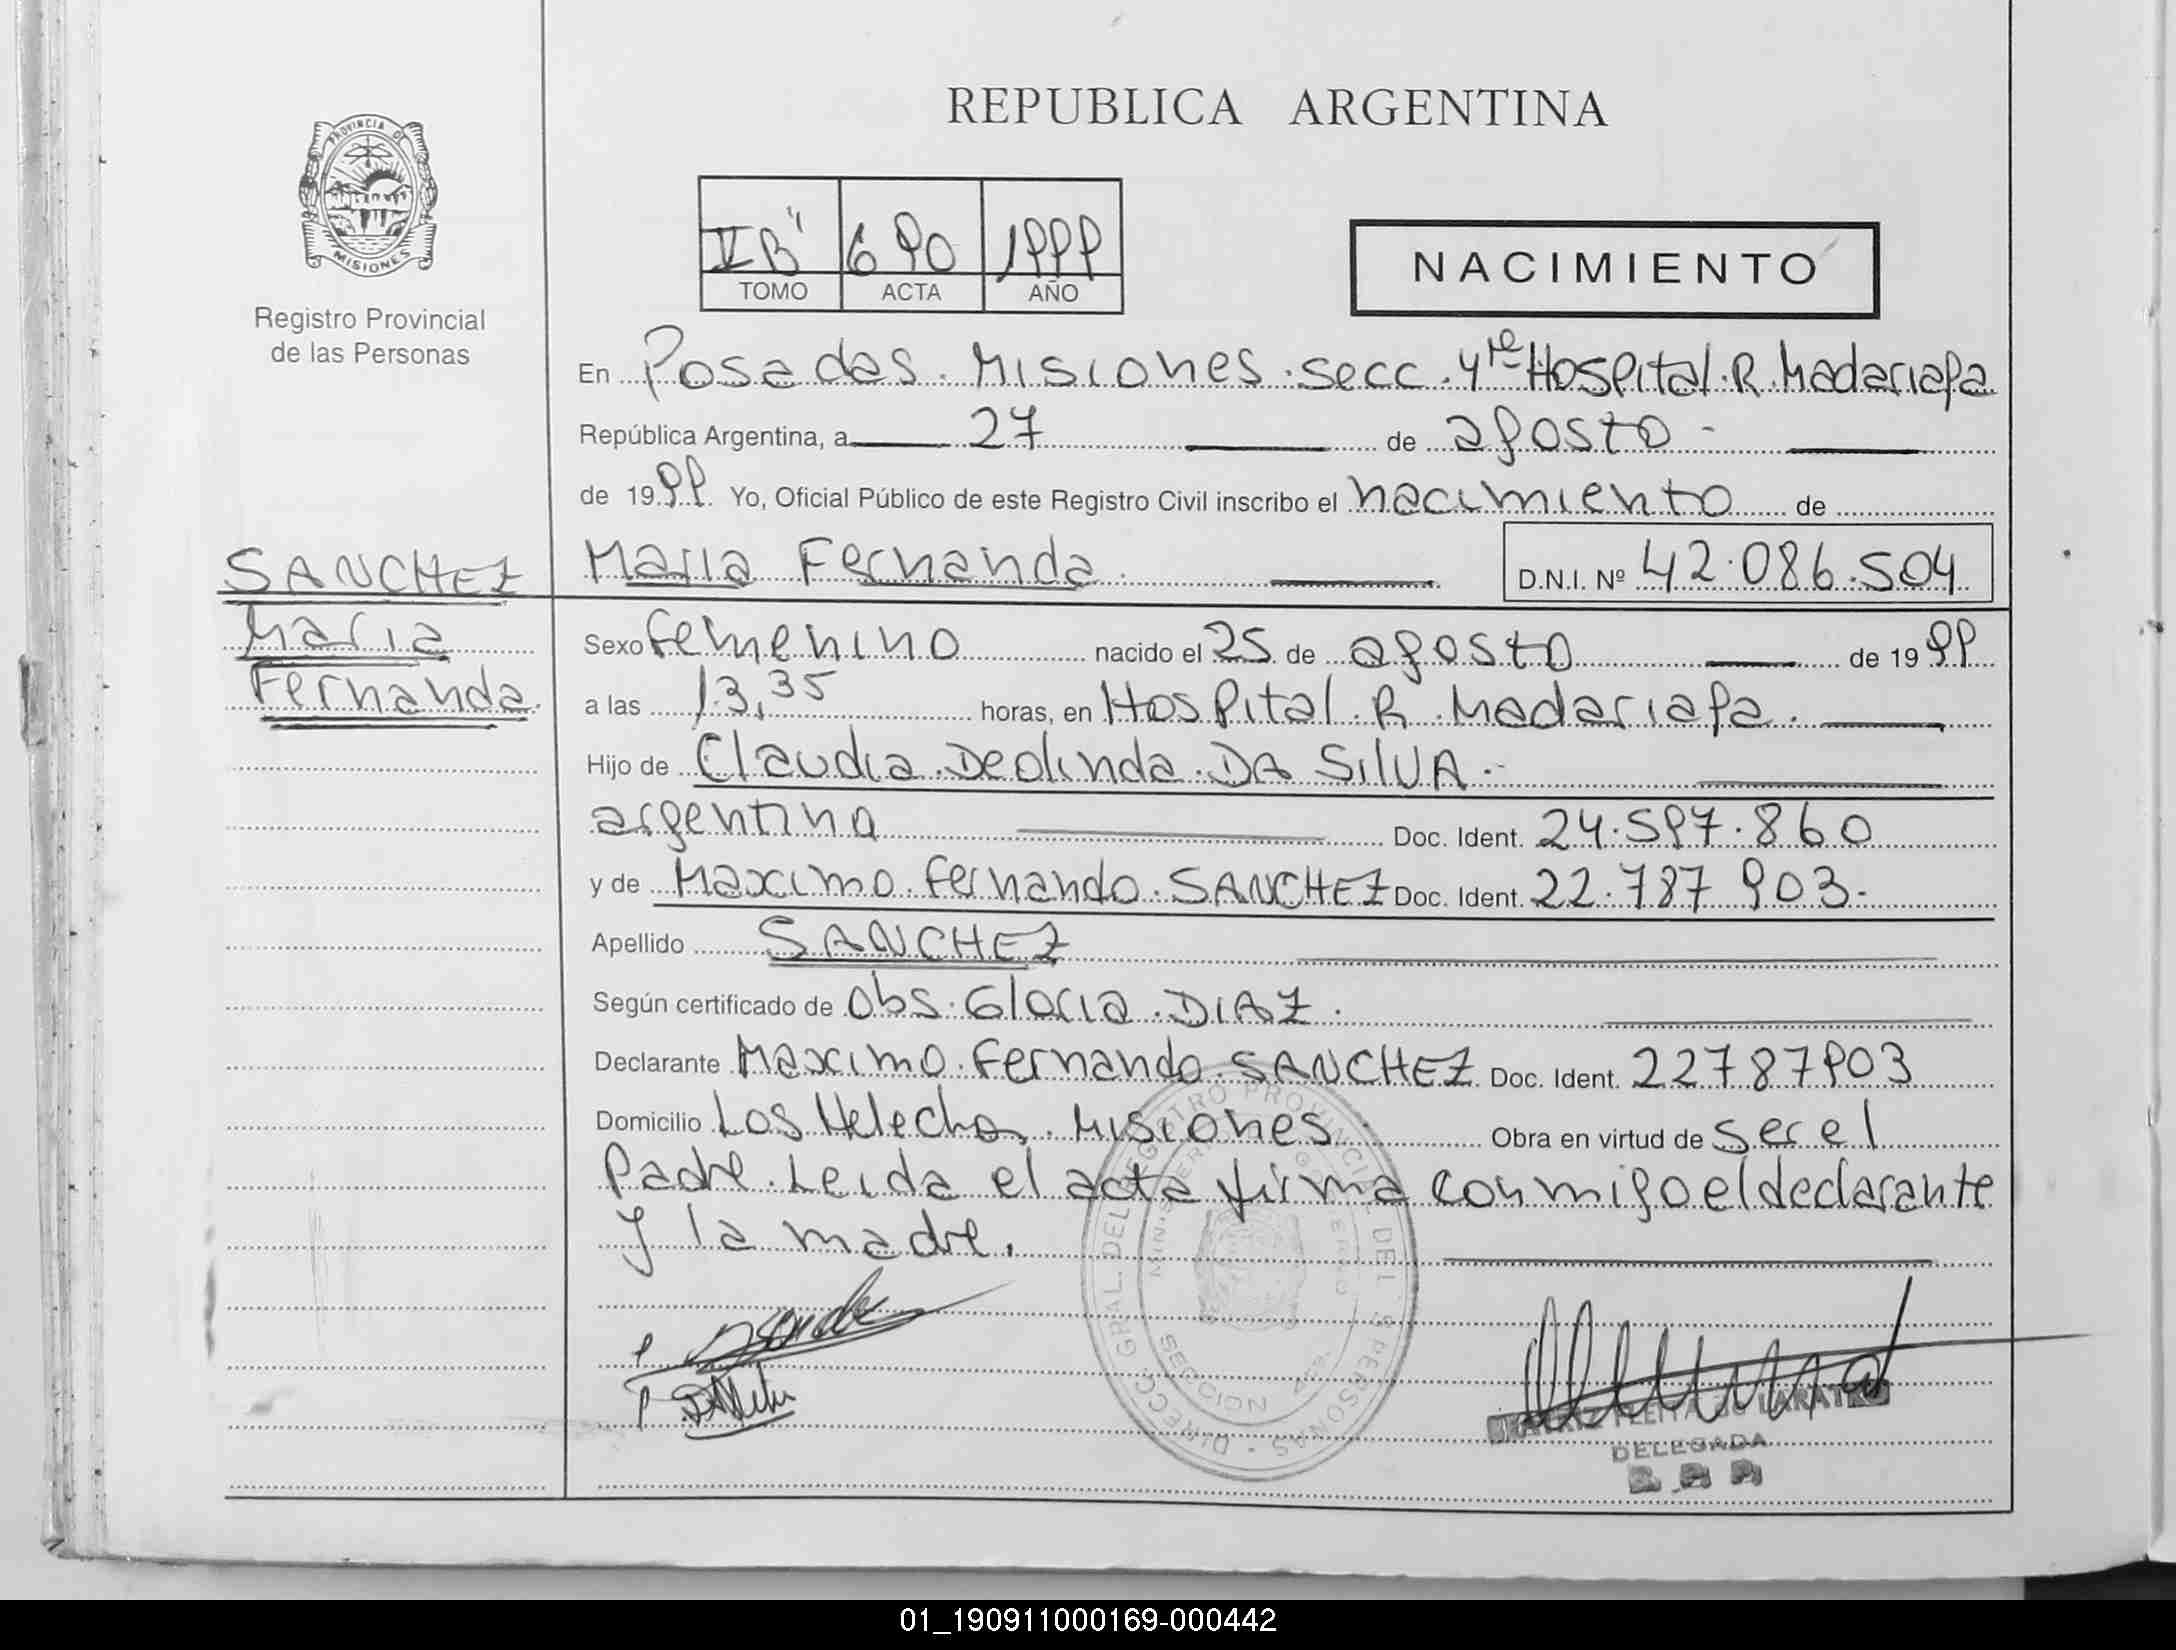 REPUBLICA ARGENTINA
PROVINCIA DE
MISIONES
Registro Provincial
de las Personas
TOMO ACTA AÑO
690 1999
NACIMIENTO
En Posadas. Misiones. secc. 4ta Hospital. R. Madariaga
República Argentina, a 27 de agosto -
de 1999. Yo, Oficial Público de este Registro Civil inscribo el nacimiento de
SANCHEZ
Maria
Fernanda.
Maria Fernanda. D.N.I. Nº 42.086.504
Sexo femenino nacido el 25 de agosto de 1999
a las 13,35 horas, en Hospital. R. Madariaga.
Hijo de Claudia. Deolinda. DA SILVA.-
argentina Doc. Ident. 24.597.860
y de Maximo. Fernando. SANCHEZ Doc. Ident. 22.787 903.
Apellido SANCHEZ
Según certificado de Obs. Gloria. DIAZ.
Declarante Maximo. Fernando. SANCHEZ Doc. Ident. 22787903
Domicilio Los Helechos. Misiones. Obra en virtud de ser el
Padre. Leida el acta firma conmigo el declarante
y la madre.
DELEGADA
01_190911000169-000442